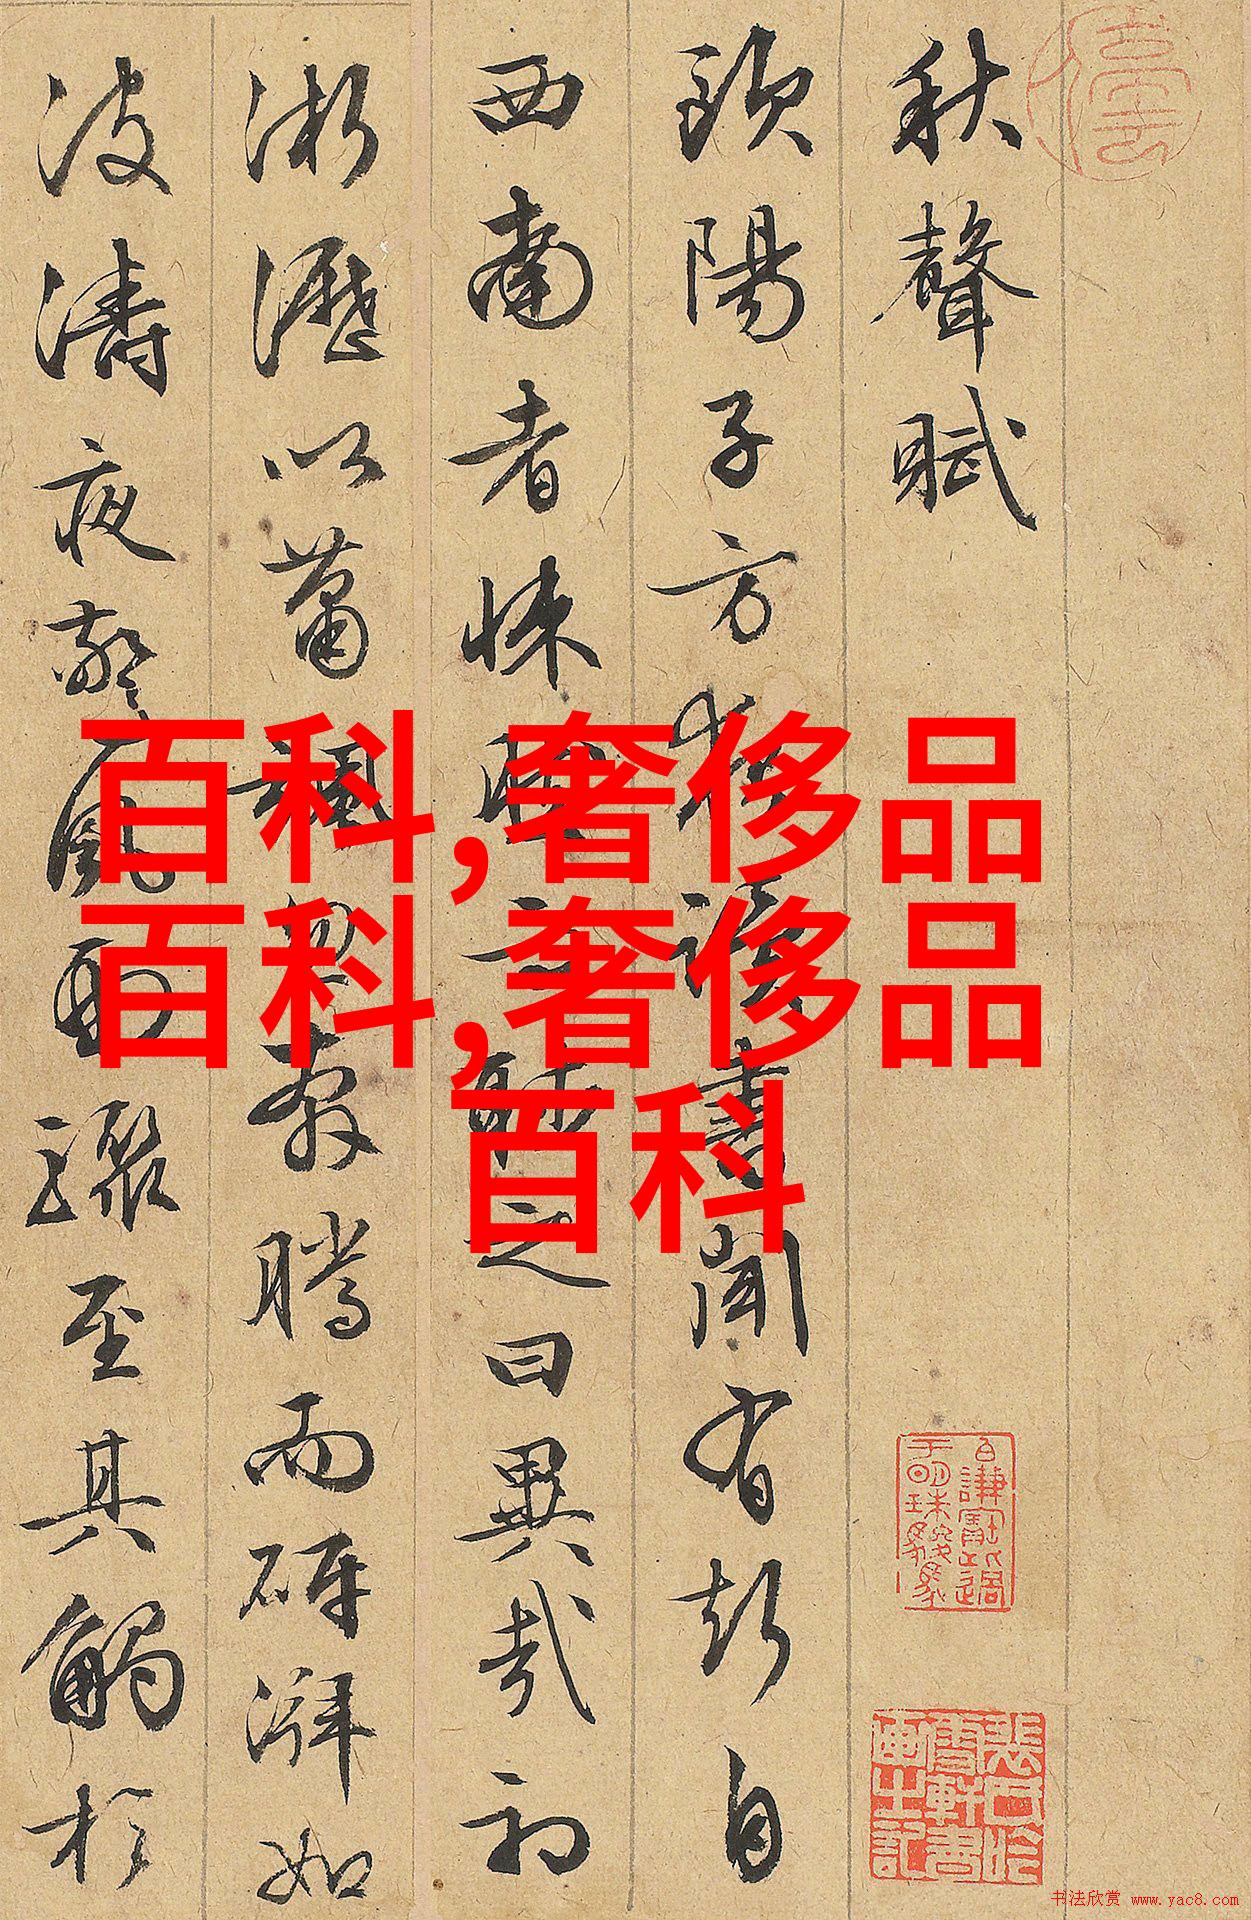 秋聲賦
歐陽子方讀書聞有聲自
西南者悚聽之曰異哉初
淅瀝以蕭颯忽奔騰而砰湃如
波濤夜驚風雨驟至其觸於
百科,奢侈品
百科,奢侈品
百科
书法欣赏 www.yac8.com